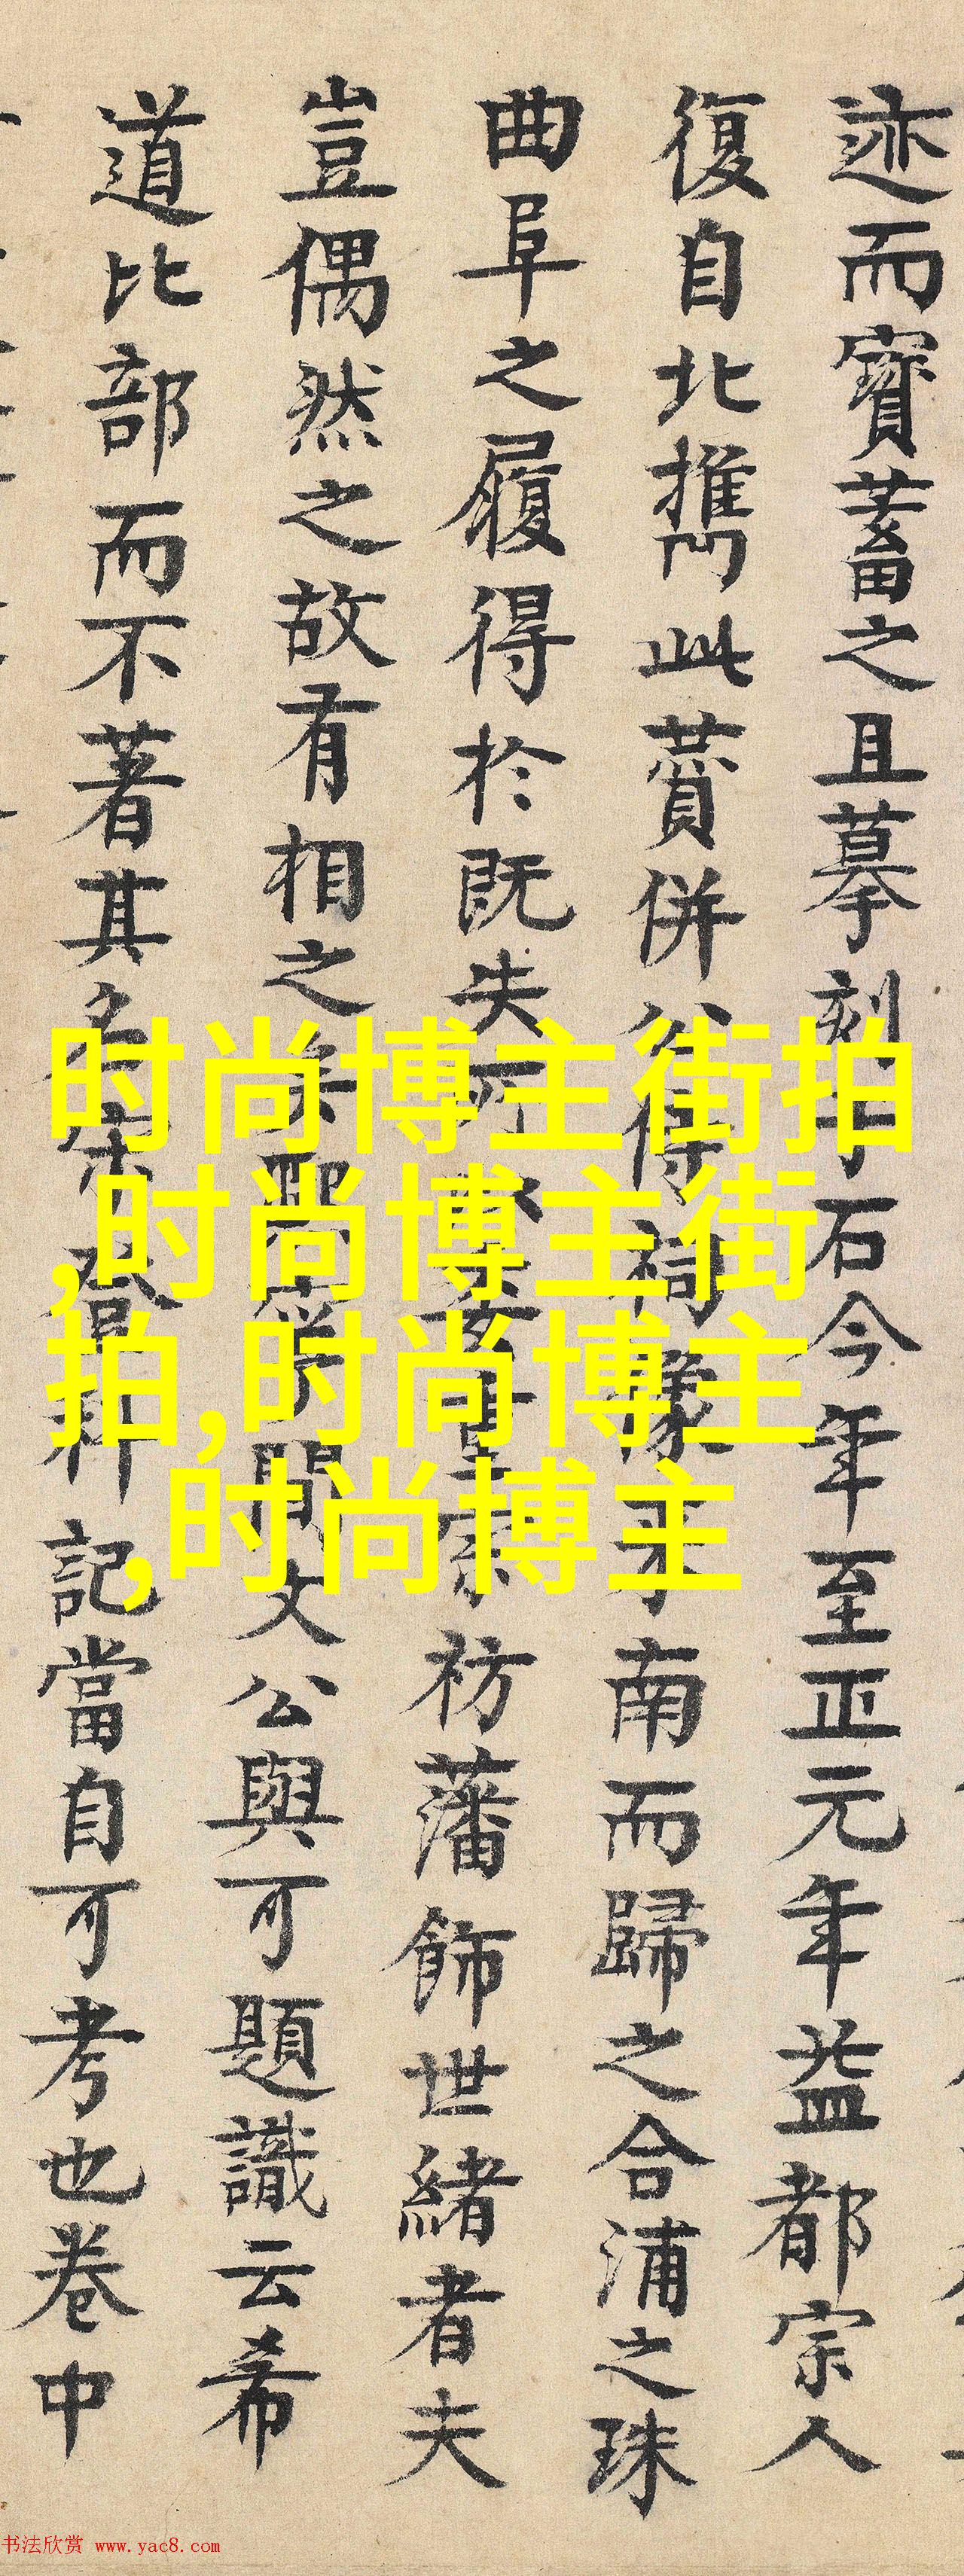 迹而寶蓄之且摹刻于石今年至正元年益都宗人
復自北携此賛併公得祠像來南而歸之合浦之珠
曲阜之履得於既失宗祊藩飾世緒者夫
豈偶然之故有相之文公與可題識云希
道比部而不著其名宋登科記當自可考也卷中
时尚博主街拍
,时尚博主街
拍,时尚博主
,时尚博主
书法欣赏 www.yac8.com